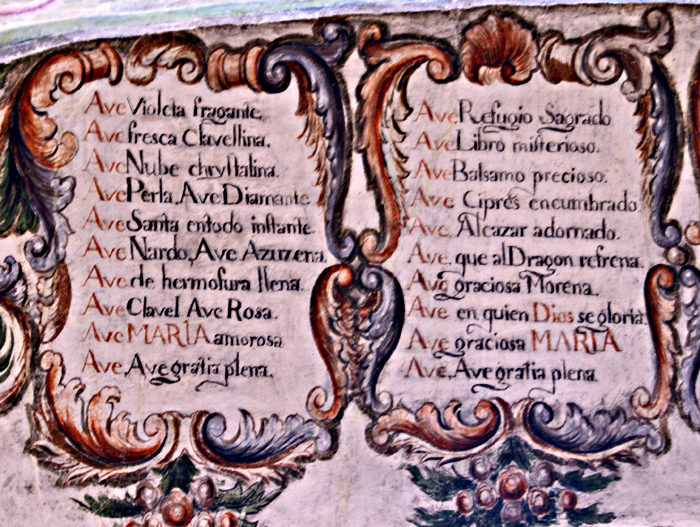 Ave Violeta fragante.
Ave fresca Clavellina.
Ave Nube chrystalina.
Ave Perla, Ave Diamante.
Ave Santa entodo instante.
Ave Nardo, Ave Azuzena.
Ave de hermosura llena.
Ave Clavel Ave Rosa.
Ave MARÍA amorosa
Ave, Ave gratia plena.
Ave Refugio Sagrado
Ave Libro misterioso.
Ave Balsamo precioso.
Ave Ciprés encumbrado
Ave, Alcazar adornado.
Ave, que al Dragon refrena.
Ave graciosa Morena.
Ave en quien Dios se gloria.
Ave graciosa MARÍA
Ave, Ave gratia plena.